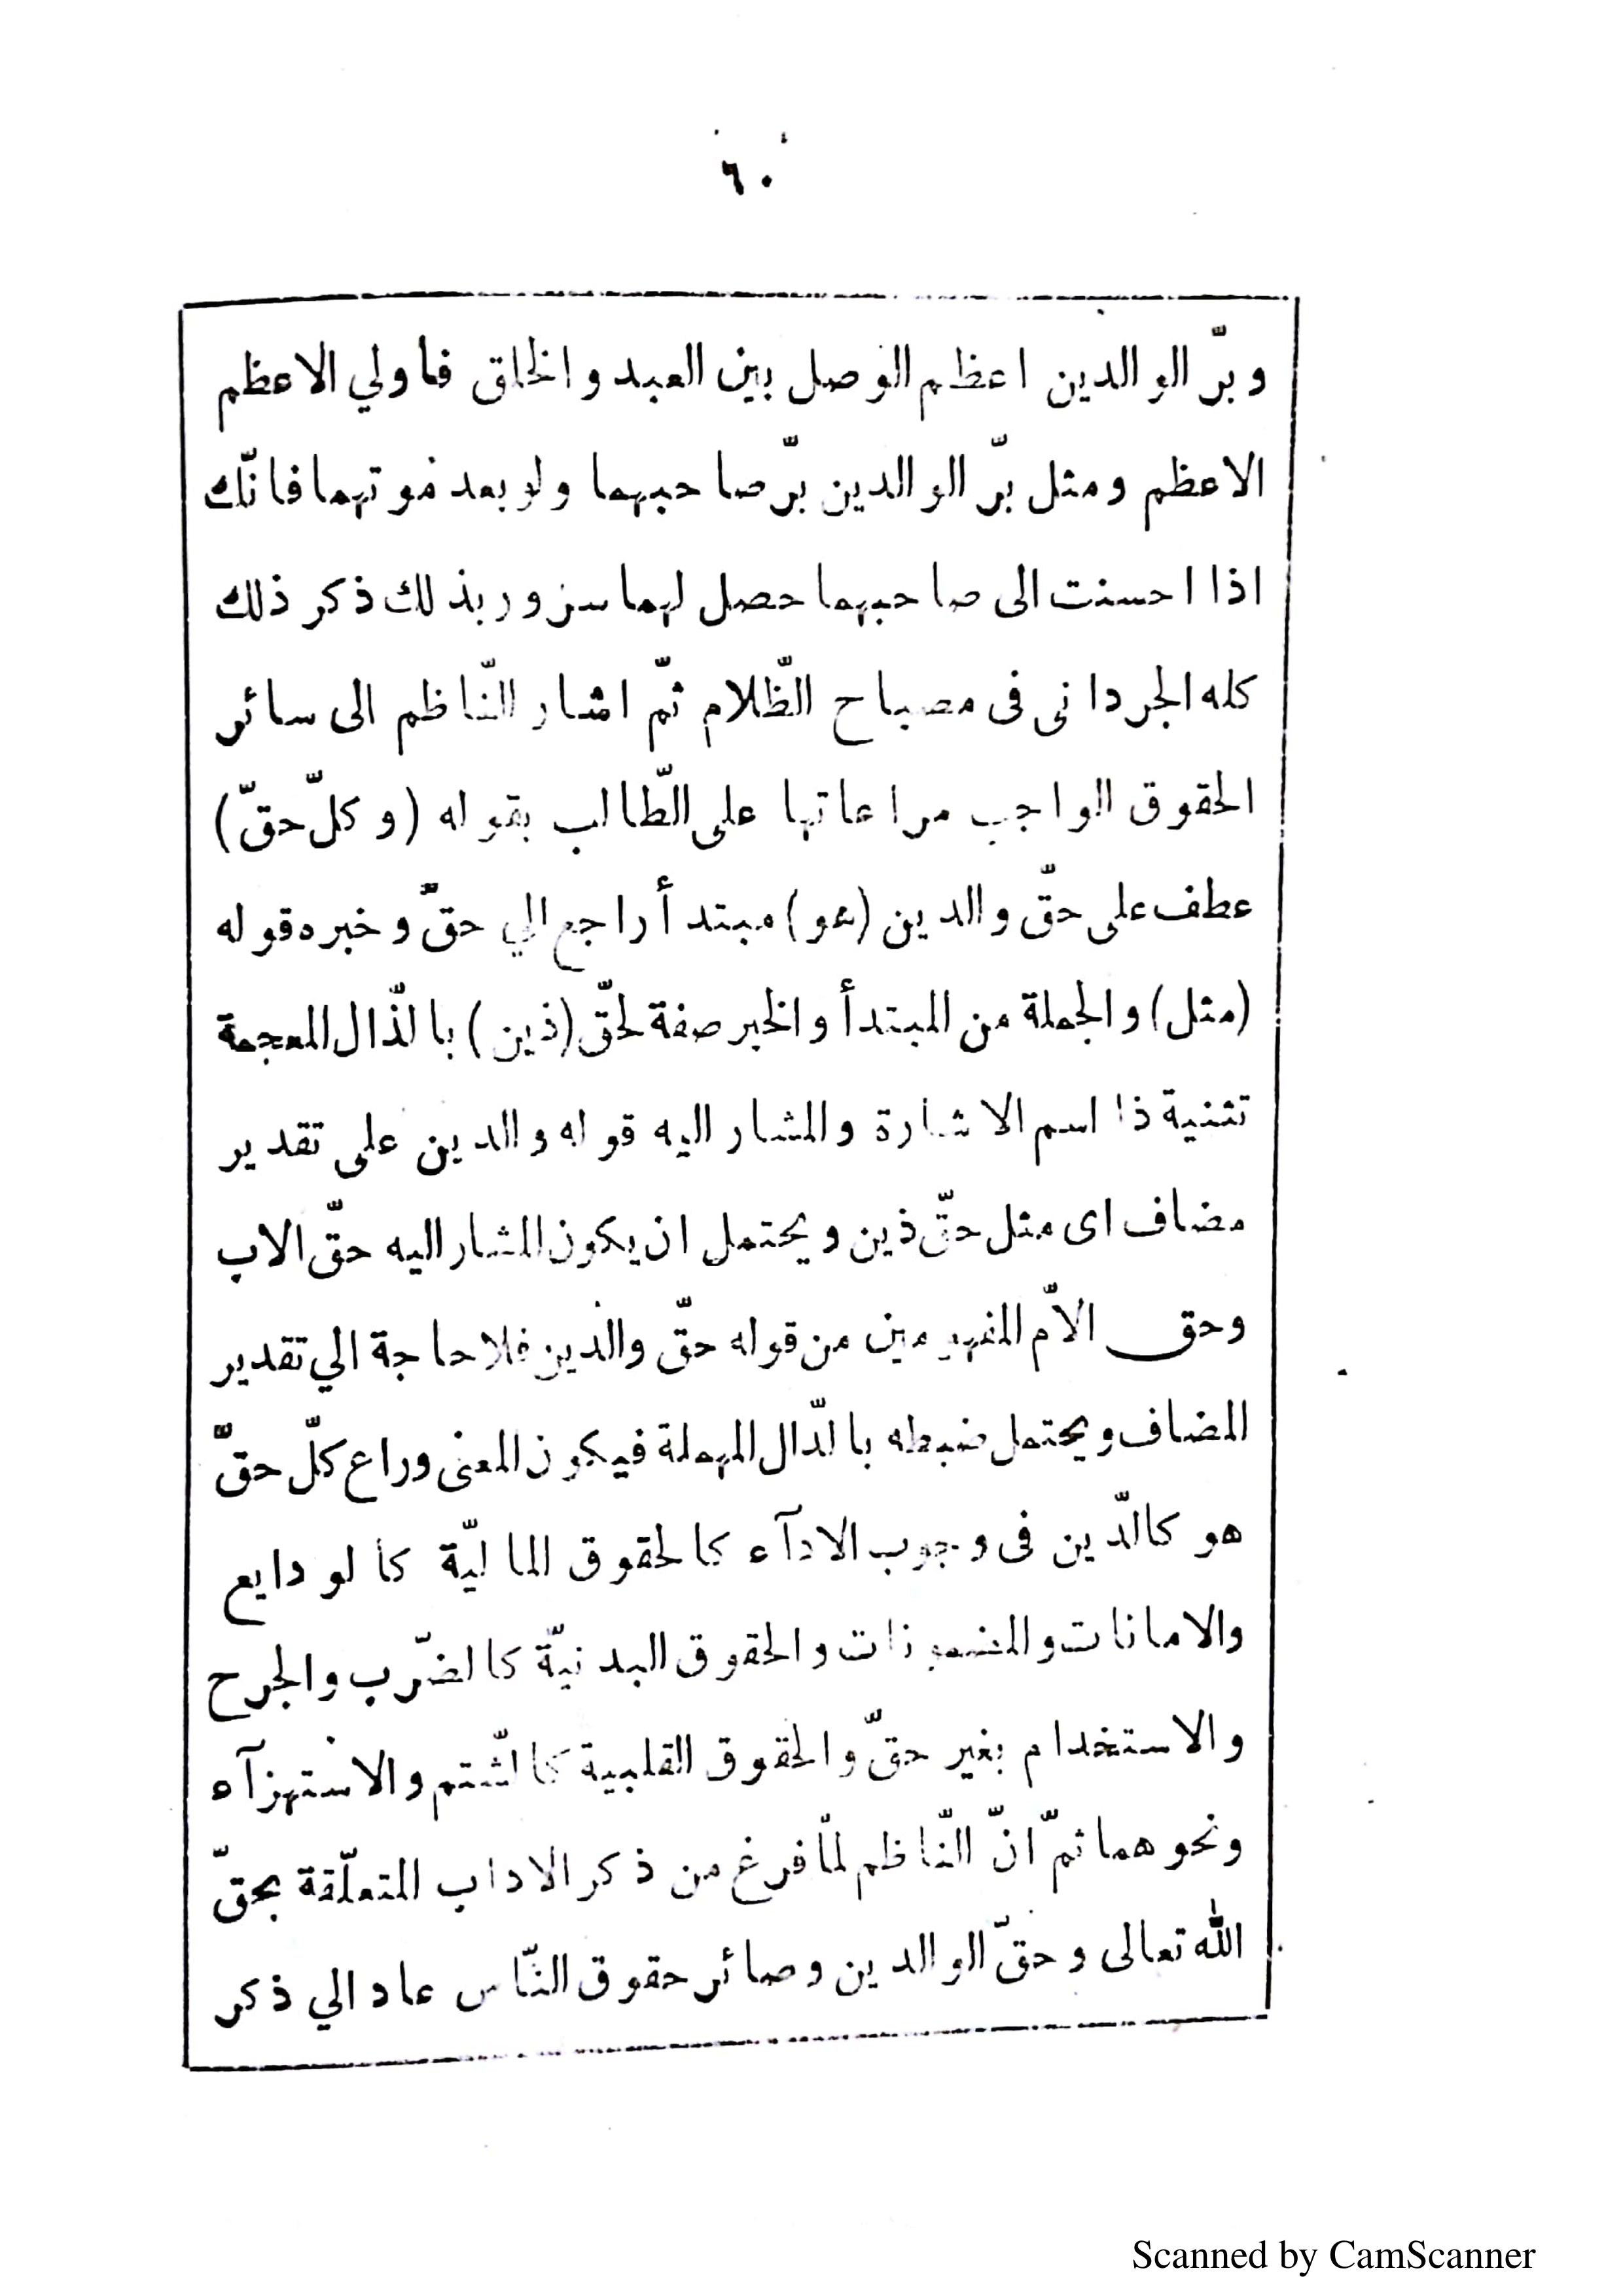 ٦٠
وبرّ الوالدين اعظم الوصل بين العبد والخلق فاولي الاعظم
الاعظم ومثل برّ الوالدين برّ صاحبهما ولو بعد موتهما فانّك
اذا احسنت الى صاحبهما حصل لهما سرور بذلك ذكر ذلك
كله الجرداني فى مصباح الظّلام ثمّ اشار النّاظم الى سائر
الحقوق الواجب مراعاتها على الطّالب بقوله (وكلّ حقّ)
عطف على حقّ والدين (هو) مبتدأ راجع الي حقّ وخبره قوله
(مثل) والجملة من المبتدأ والخبر صفة لحقّ (ذين) بالذّال المعجمة
تثنية ذا اسم الاشارة والمشار اليه قوله والدين على تقدير
مضاف اى مثل حقّ ذين ويحتمل ان يكون المشار اليه حقّ الاب
وحق الامّ المفهومين من قوله حقّ والدين فلا حاجة الي تقدير
المضاف ويحتمل ضبطه بالدّال المهملة فيكون المعنى وراع كلّ حقّ
هو كالدّين فى وجوب الادآء كالحقوق الماليّة كالودايع
والامانات والمضمونات والحقوق البدنيّة كالضّرب والجرح
والاستخدام بغير حقّ والحقوق القلبية كالشّتم والاستهزآء
ونحوهما ثمّ انّ النّاظم لمّا فرغ من ذكر الاداب المتعلّقة بحقّ
الله تعالى وحقّ الوالدين وصائر حقوق النّاس عاد الي ذكر
Scanned by CamScanner